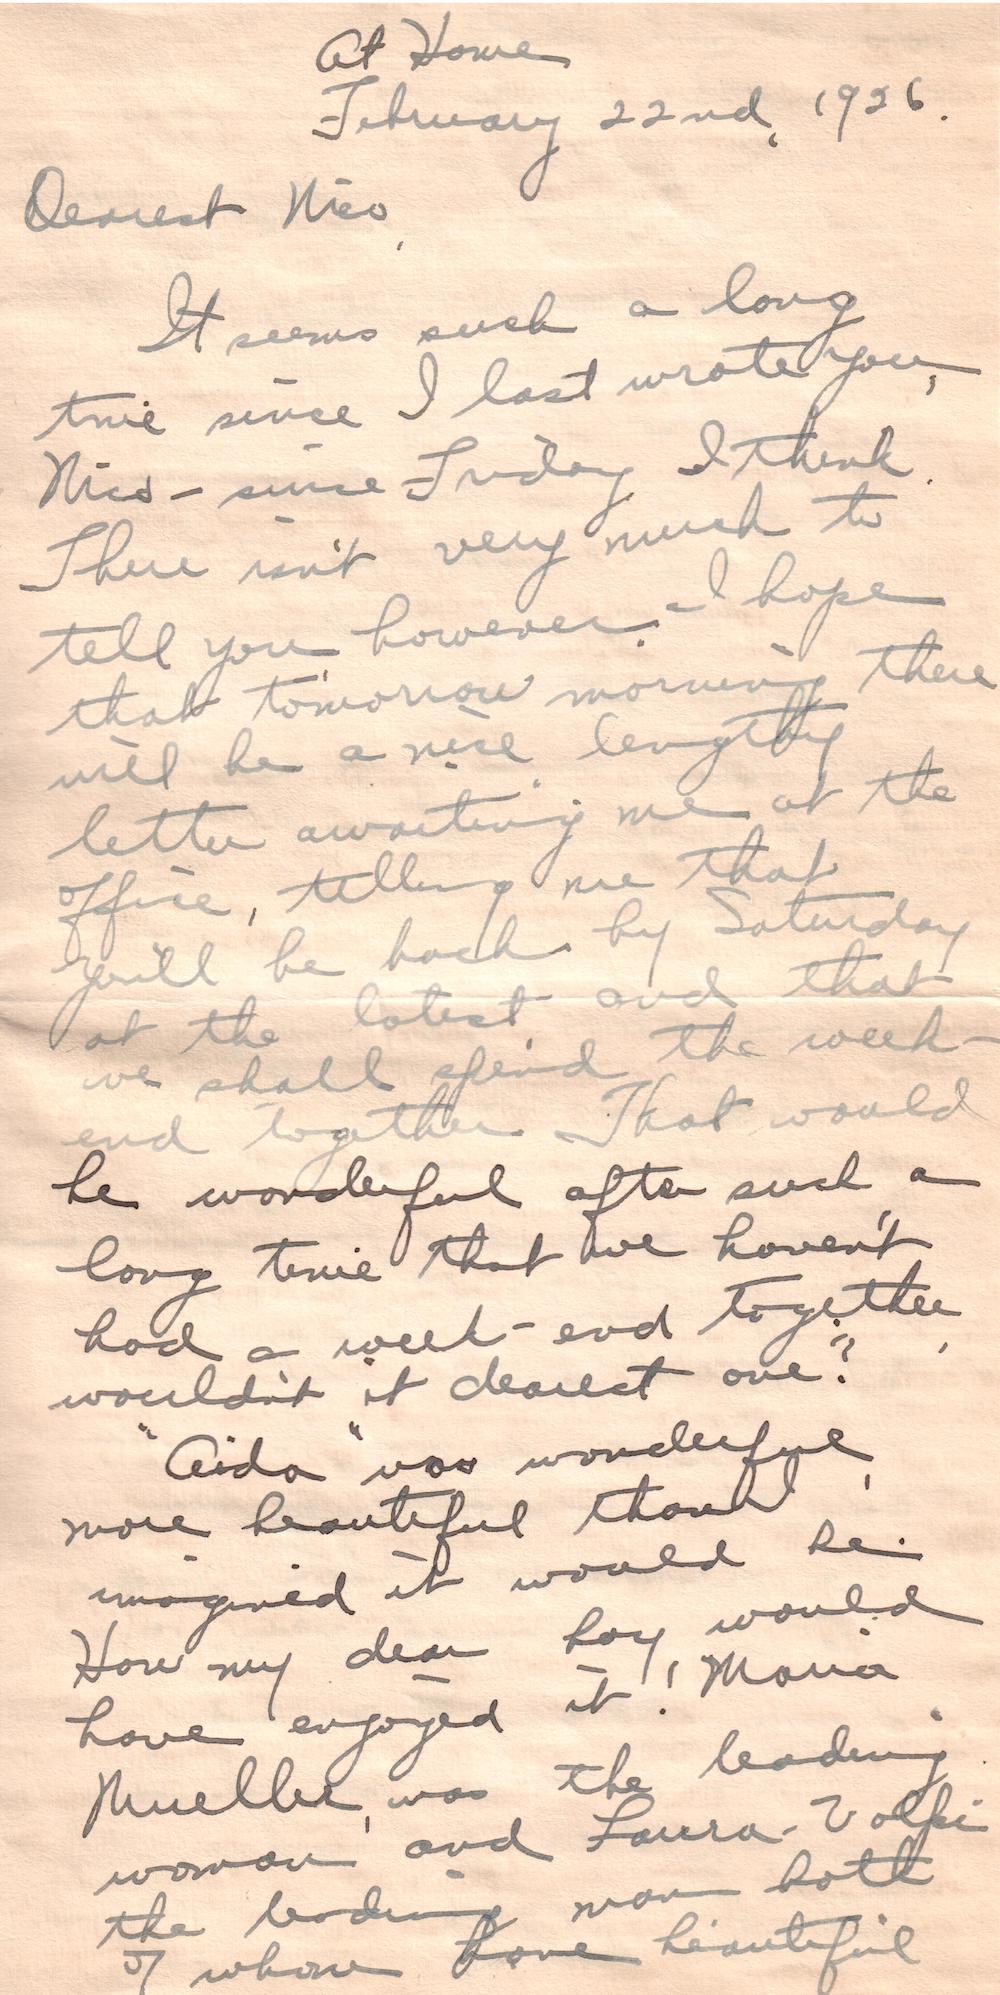 At Home
February 22nd, 1926.
Dearest Nico,
It seems such a long
time since I last wrote you,
Nico - since Friday I think.
There isn't very much to
tell you, however. - I hope
that tomorrow morning there
will be a nice, lengthy
letter awaiting me at the
office, telling me that
you'll be back by Saturday
at the latest and that
we shall spend the week-
end together. That would
be wonderful after such a
long time that we haven't
had a week-end together,
wouldn't it dearest one?
"Aida" was wonderful,
more beautiful than I
imagined it would be.
How my dear boy would
have enjoyed it! Maria
Mueller, was the leading
woman and Laura-Volpi
the leading man both
of whom have beautiful